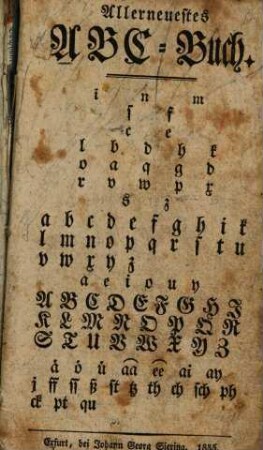 Allerneuestes
ABC=Buch.
i n m
ſ f
c e
l b d h k
o a q g d
r v w p x
s z
a b c d e f g h i k
l m n o p q r ſ t u
v w x y z
a e i o u y
A B C D E F G H J
K L M N O P Q R
S T U V W X Y Z
ä ö ü aa ee ai ay
j ff ſſ ß ſt tz th ch ſch ph
ck pt qu
Erfurt, bei Johann Georg